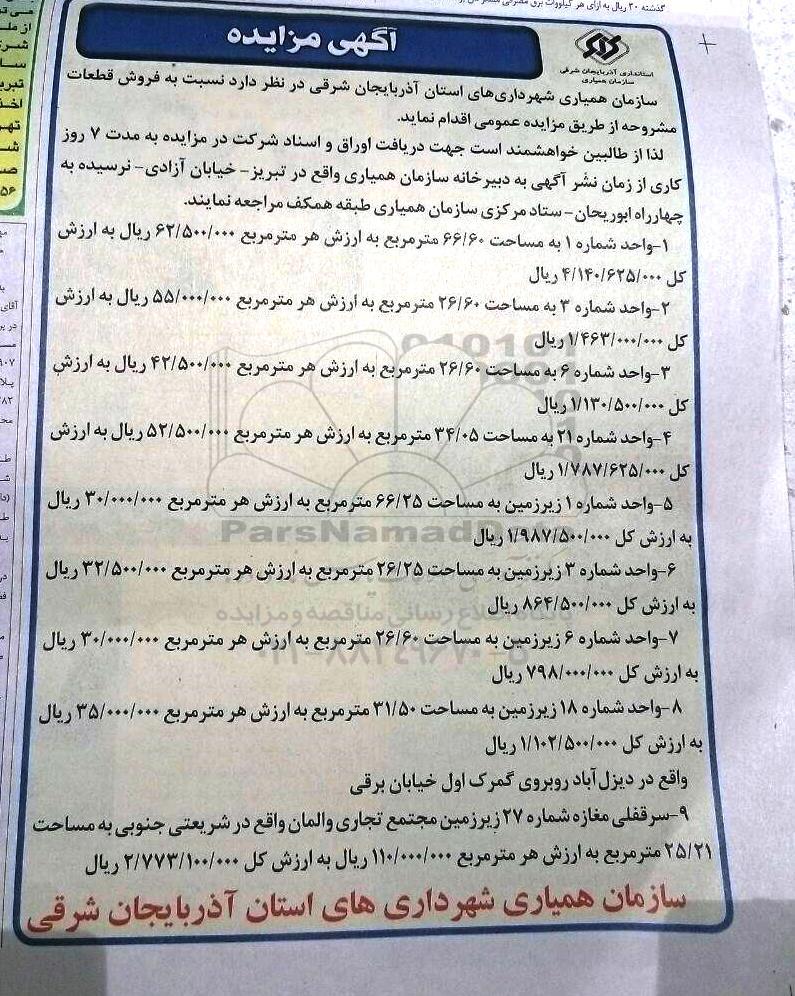 گذشته ۲۰ ریال به ازای هر کیلووات برق مصرفی
آگهی مزایده
استانداری آذربایجان شرقی
سازمان همیاری
سازمان همیاری شهرداری‌های استان آذربایجان شرقی در نظر دارد نسبت به فروش قطعات
مشروحه از طریق مزایده عمومی اقدام نماید.
لذا از طالبین خواهشمند است جهت دریافت اوراق و اسناد شرکت در مزایده به مدت ۷ روز
کاری از زمان نشر آگهی به دبیرخانه سازمان همیاری واقع در تبریز- خیابان آزادی- نرسیده به
چهارراه ابوریحان- ستاد مرکزی سازمان همیاری طبقه همکف مراجعه نمایند.
۱-واحد شماره ۱ به مساحت ۶۶/۶۰ مترمربع به ارزش هر مترمربع ۶۲/۵۰۰/۰۰۰ ریال به ارزش
کل ۴/۱۴۰/۶۲۵/۰۰۰ ریال
۲-واحد شماره ۳ به مساحت ۲۶/۶۰ مترمربع به ارزش هر مترمربع ۵۵/۰۰۰/۰۰۰ ریال به ارزش
کل ۱/۴۶۳/۰۰۰/۰۰۰ ریال
۳-واحد شماره ۶ به مساحت ۲۶/۶۰ مترمربع به ارزش هر مترمربع ۴۲/۵۰۰/۰۰۰ ریال به ارزش
کل ۱/۱۳۰/۵۰۰/۰۰۰ ریال
۴-واحد شماره ۲۱ به مساحت ۳۴/۰۵ مترمربع به ارزش هر مترمربع ۵۲/۵۰۰/۰۰۰ ریال به ارزش
کل ۱/۷۸۷/۶۲۵/۰۰۰ ریال
۵-واحد شماره ۱ زیرزمین به مساحت ۶۶/۲۵ مترمربع به ارزش هر مترمربع ۳۰/۰۰۰/۰۰۰ ریال
به ارزش کل ۱/۹۸۷/۵۰۰/۰۰۰ ریال
ParsNamadData
۶-واحد شماره ۳ زیرزمین به مساحت ۲۶/۲۵ مترمربع به ارزش هر مترمربع ۳۲/۵۰۰/۰۰۰ ریال
به ارزش کل ۸۶۴/۵۰۰/۰۰۰ ریال
پایگاه اطلاع رسانی مناقصه و مزایده
۷-واحد شماره ۶ زیرزمین به مساحت ۲۶/۶۰ مترمربع به ارزش هر مترمربع ۳۰/۰۰۰/۰۰۰ ریال
به ارزش کل ۷۹۸/۰۰۰/۰۰۰ ریال
۸-واحد شماره ۱۸ زیرزمین به مساحت ۳۱/۵۰ مترمربع به ارزش هر مترمربع ۳۵/۰۰۰/۰۰۰ ریال
به ارزش کل ۱/۱۰۲/۵۰۰/۰۰۰ ریال
واقع در دیزل‌آباد روبروی گمرک اول خیابان برقی
۹-سرقفلی مغازه شماره ۲۷ زیرزمین مجتمع تجاری والمان واقع در شریعتی جنوبی به مساحت
۲۵/۲۱ مترمربع به ارزش هر مترمربع ۱۱۰/۰۰۰/۰۰۰ ریال به ارزش کل ۲/۷۷۳/۱۰۰/۰۰۰ ریال
سازمان همیاری شهرداری های استان آذربایجان شرقی